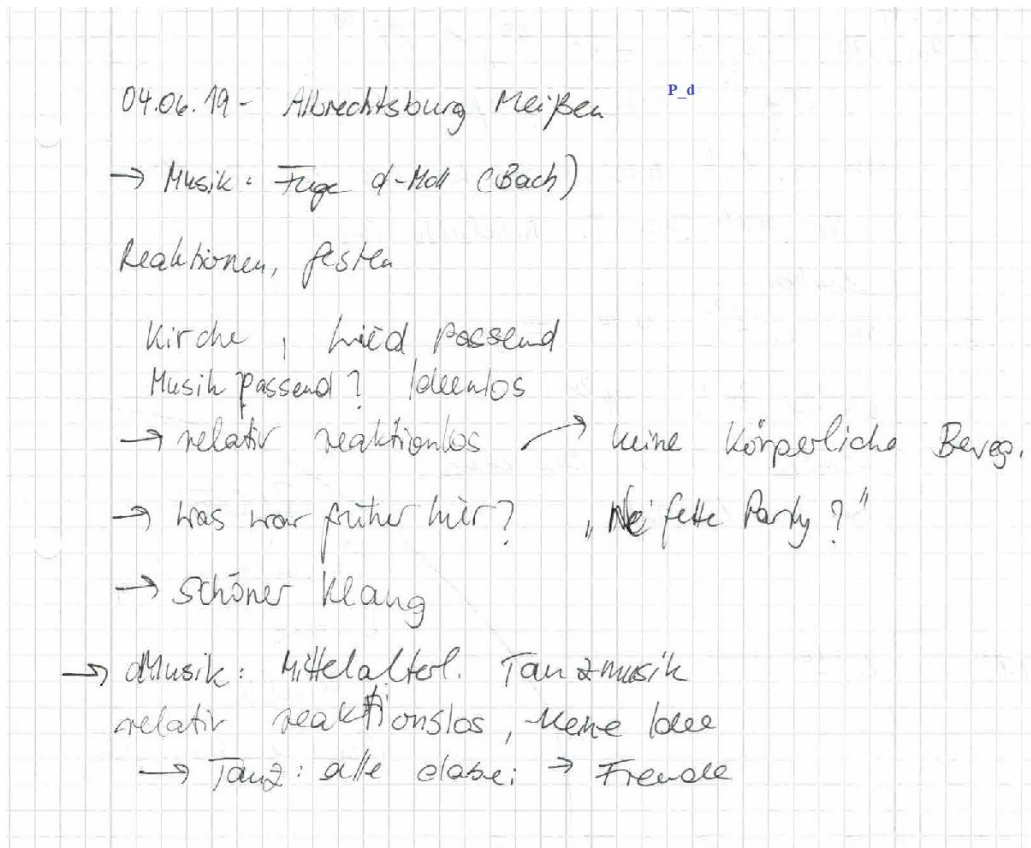 04.06.19 - Albrechtsburg Meißen P_d
→ Musik: Fuge d-Moll (Bach)
Reaktionen, Gesten
Kirche, Lied passend
Musik passend? Ideenlos
→ relativ reaktionlos → keine körperliche Beweg.
→ was war früher hier? „Ne fette Party?"
→ schöner Klang
→ Musik: Mittelalterl. Tanzmusik
relativ reaktionslos, keine Idee
→ Tanz: alle dabei → Freude